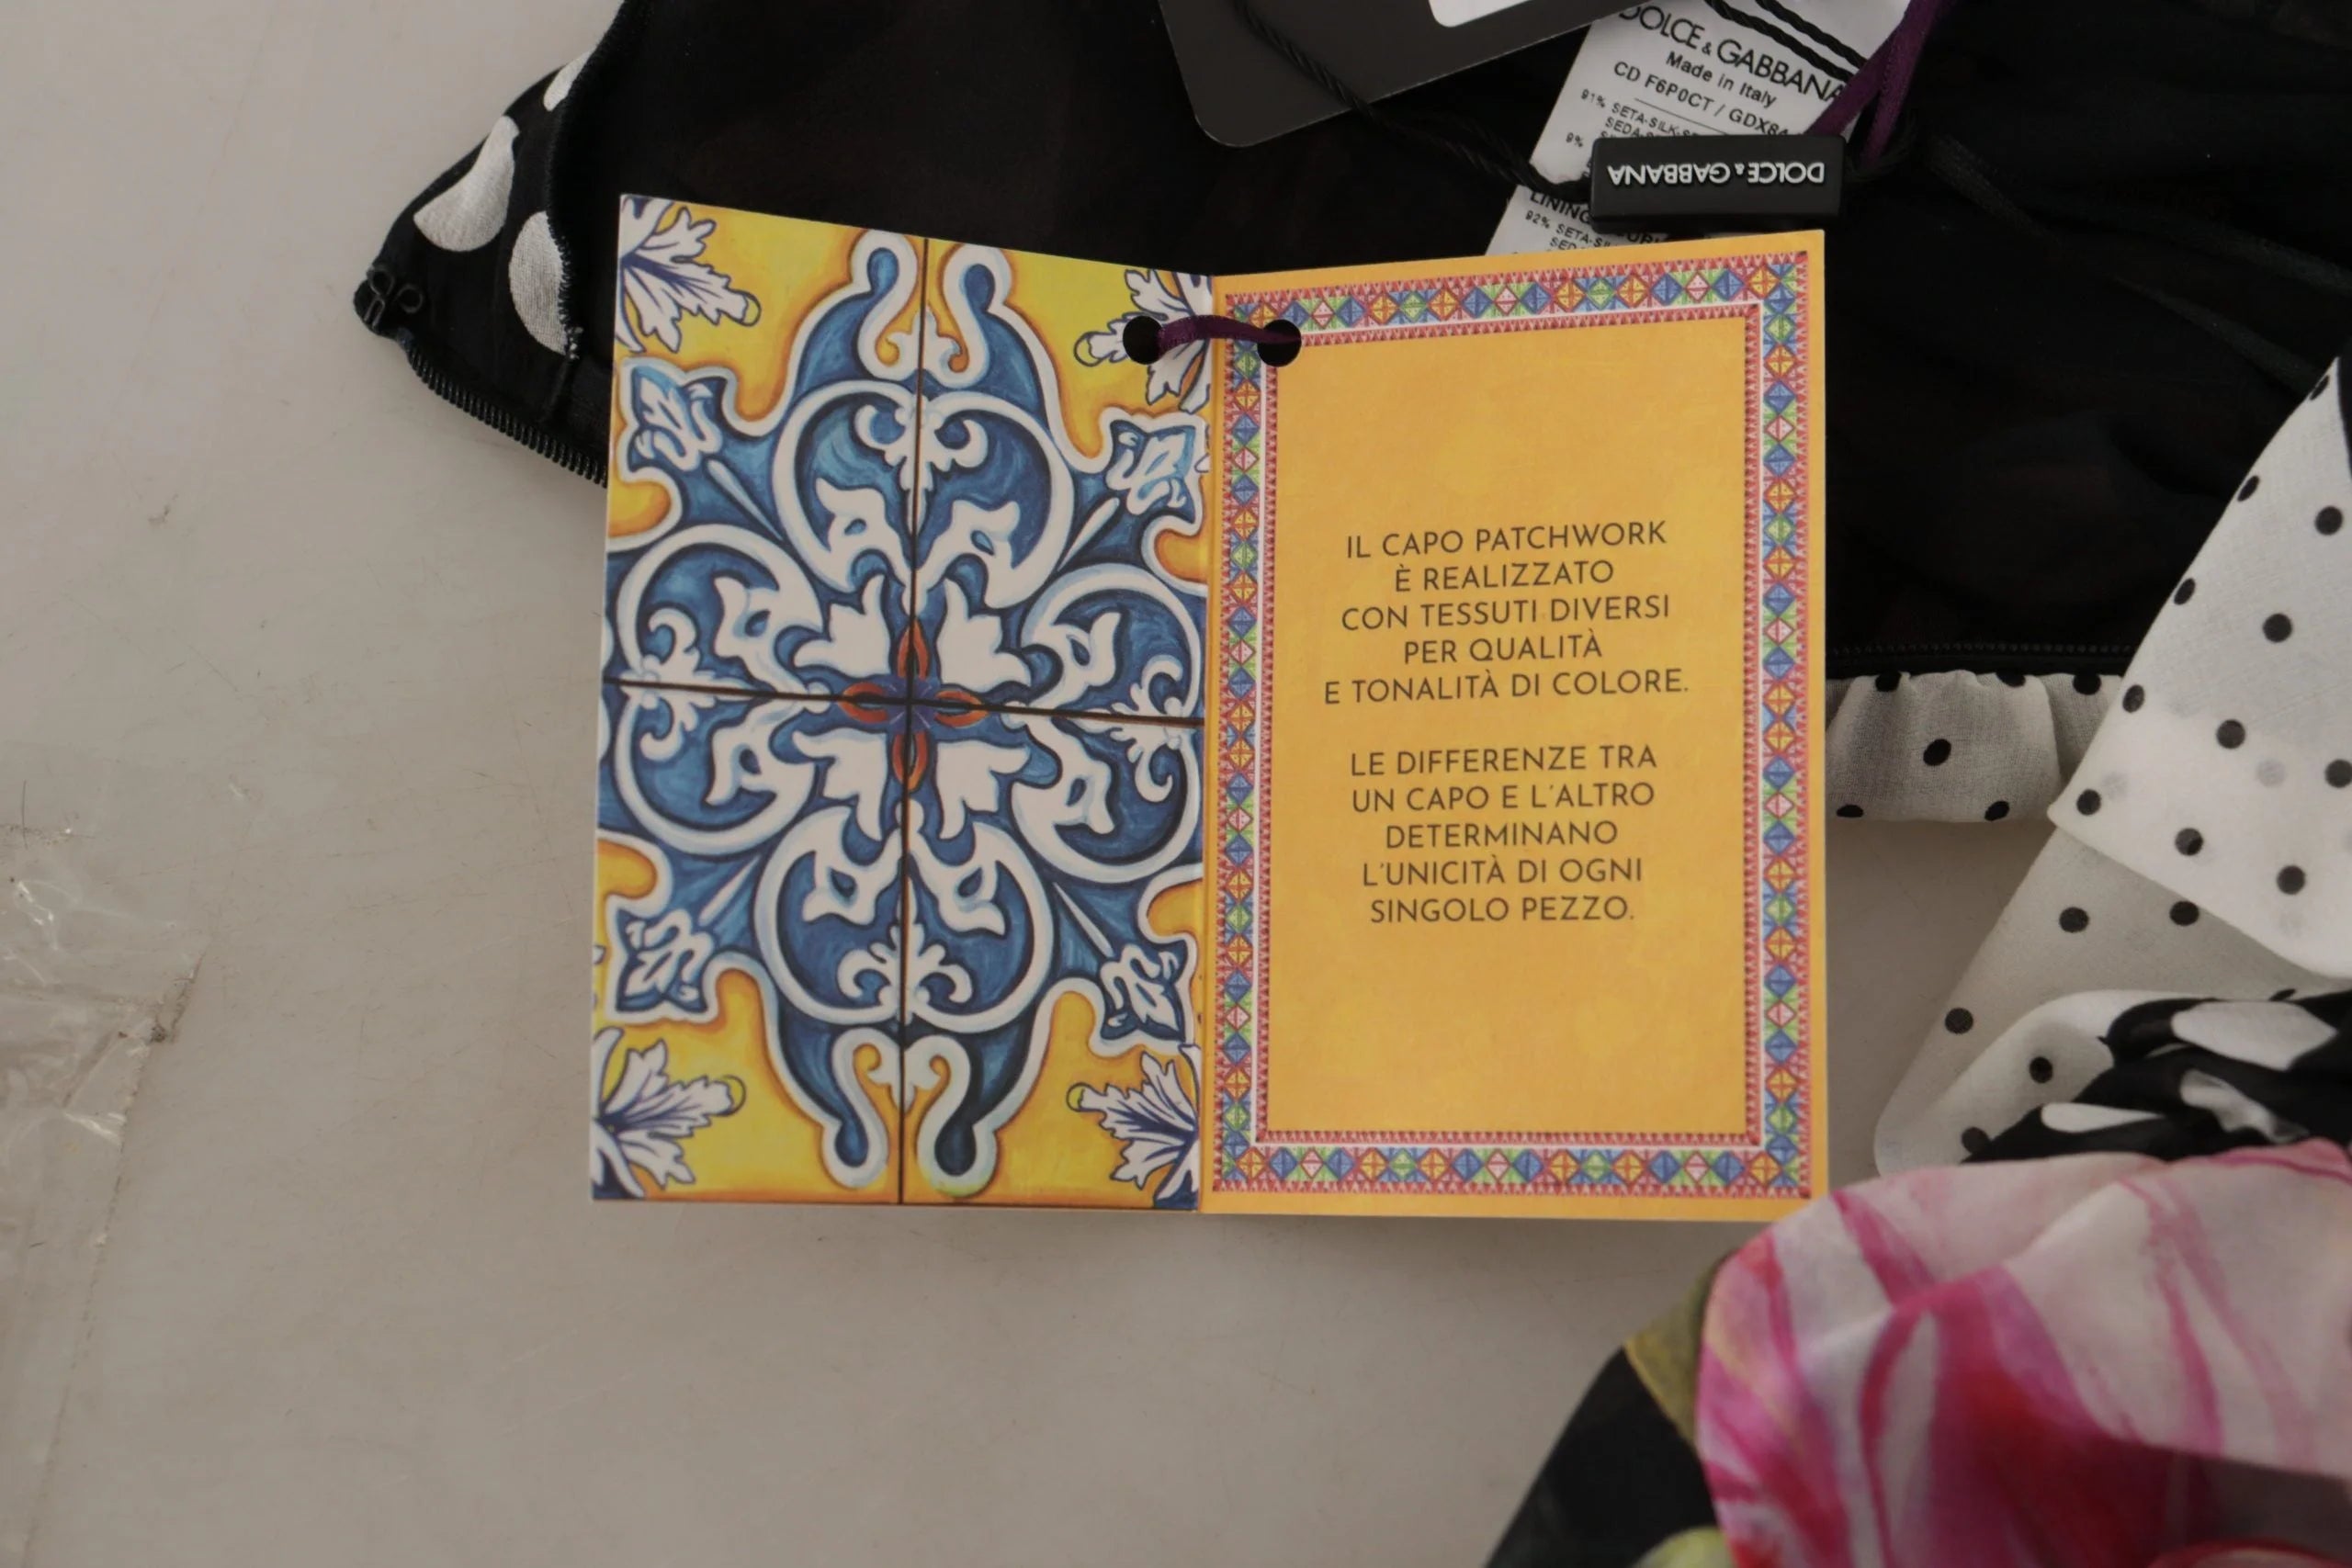 DOLCE & GABBANA
Made in Italy
CD F6P0CT / GDX8
91% SETA-SILK-S
9%
DOLCE & GABBANA
LINING
92% SETA-S
IL CAPO PATCHWORK
È REALIZZATO
CON TESSUTI DIVERSI
PER QUALITÀ
E TONALITÀ DI COLORE.
LE DIFFERENZE TRA
UN CAPO E L'ALTRO
DETERMINANO
L'UNICITÀ DI OGNI
SINGOLO PEZZO.